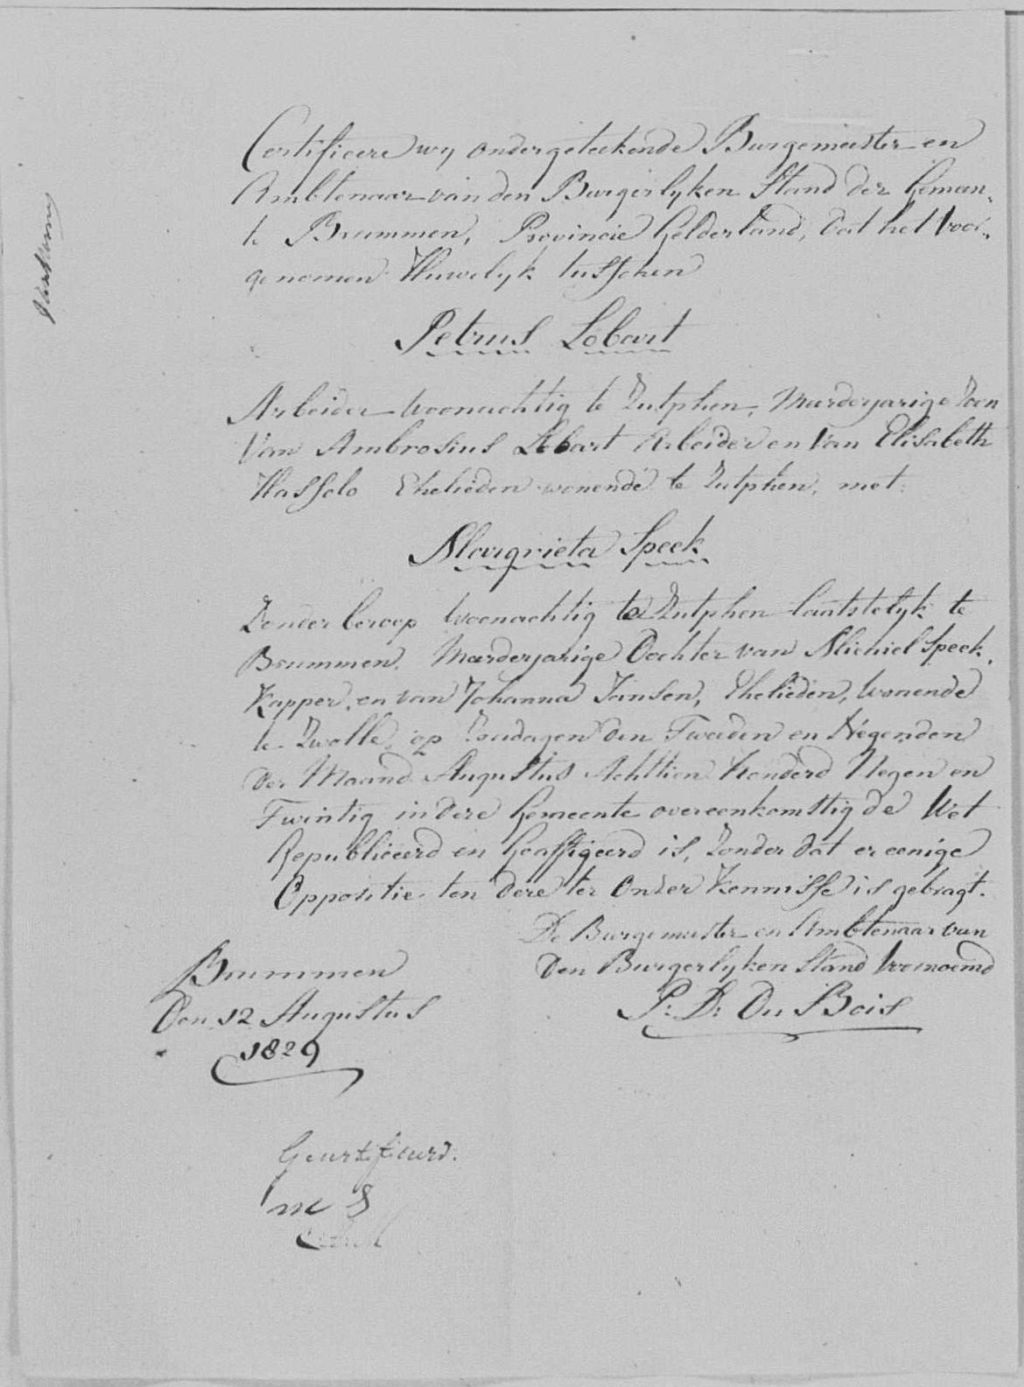 Certificere wy ondergeteekende Burgemeester en
Ambtenaar van den Burgerlyken Stand der Gemeen-
te Brummen, Provincie Gelderland, dat het Voor-
genomen Huwelyk tusschen
Petrus Lobart
Arbeider woonachtig te Zutphen, Meerderjarige Zoon
Van Ambrosius Lobart Arbeider en Van Elisabeth
Hasselo Ehelieden wonende te Zutphen, met
Margrieta Speek
Zonder beroep Woonachtig te Zutphen laatstelyk te
Brummen, Meerderjarige Dochter van Michiel Speek,
Kapper, en van Johanna Jansen, Ehelieden, Wonende
te Zwolle, op Zondagen den Tweeden en Negenden
der Maand Augustus Achttien Honderd Negen en
Twintig in deze Gemeente overeenkomstig de Wet
Gepubliceerd en Geaffigeerd is, Zonder dat er eenige
Oppositie ten deze ter Onder Kennisse is gebragt.
De Burgemeester en Ambtenaar van
Den Burgerlyken Stand Voornoemd
P: D: Du Bois
Brummen
Den 12 Augustus
1829